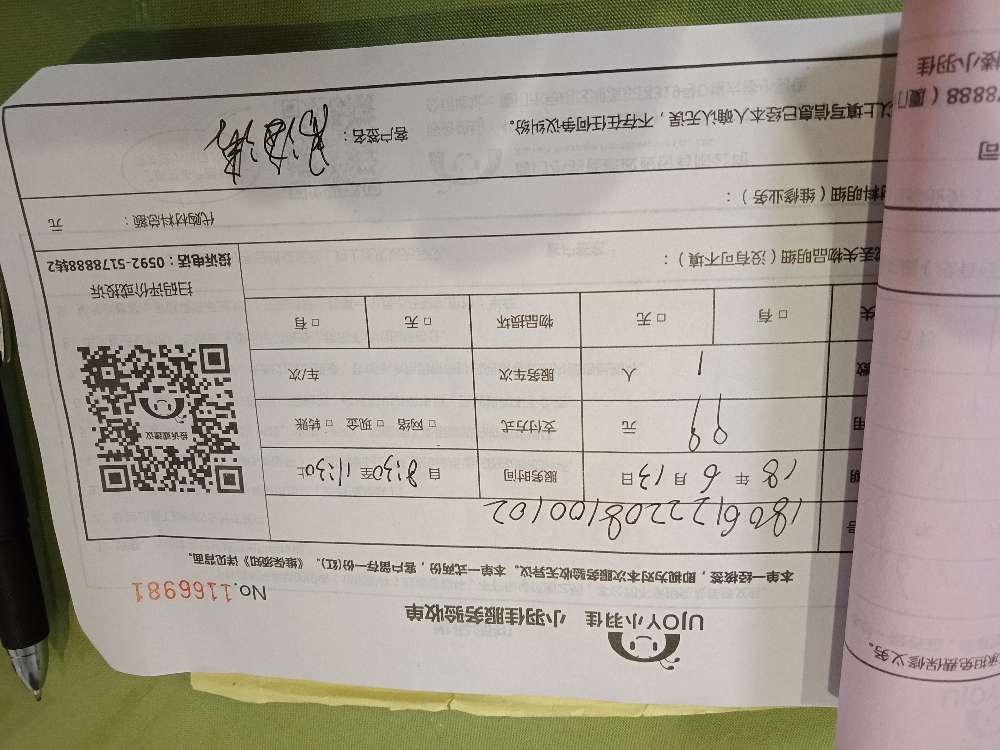 UJOY小羽佳 小羽佳服务验收单
No.1166981
本单一经核签，即视为对本次服务验收无异议。本单一式两份，客户留存一份(红)。《维保须知》详见背面。
号 1806122208100102
期 18 年 6 月 13 日 服务时间 自 8:30 至 11:30 止
用 99 元 支付方式 □ 网络 □ 现金 □ 转账
数 1 人 服务车次 车/次
失 □ 有 □ 无 物品损坏 □ 无 □ 有
投诉或建议
扫码评价或投诉
投诉电话：0592-5178888转2
丢失物品明细（没有可不填）：
材料明细（维修业务）：
代购材料总额： 元
以上填写信息已经本人确认无误，不存在任何争议纠纷。
客户签名：
承担免费保修义务。
司
78888（厦门
楼小羽佳